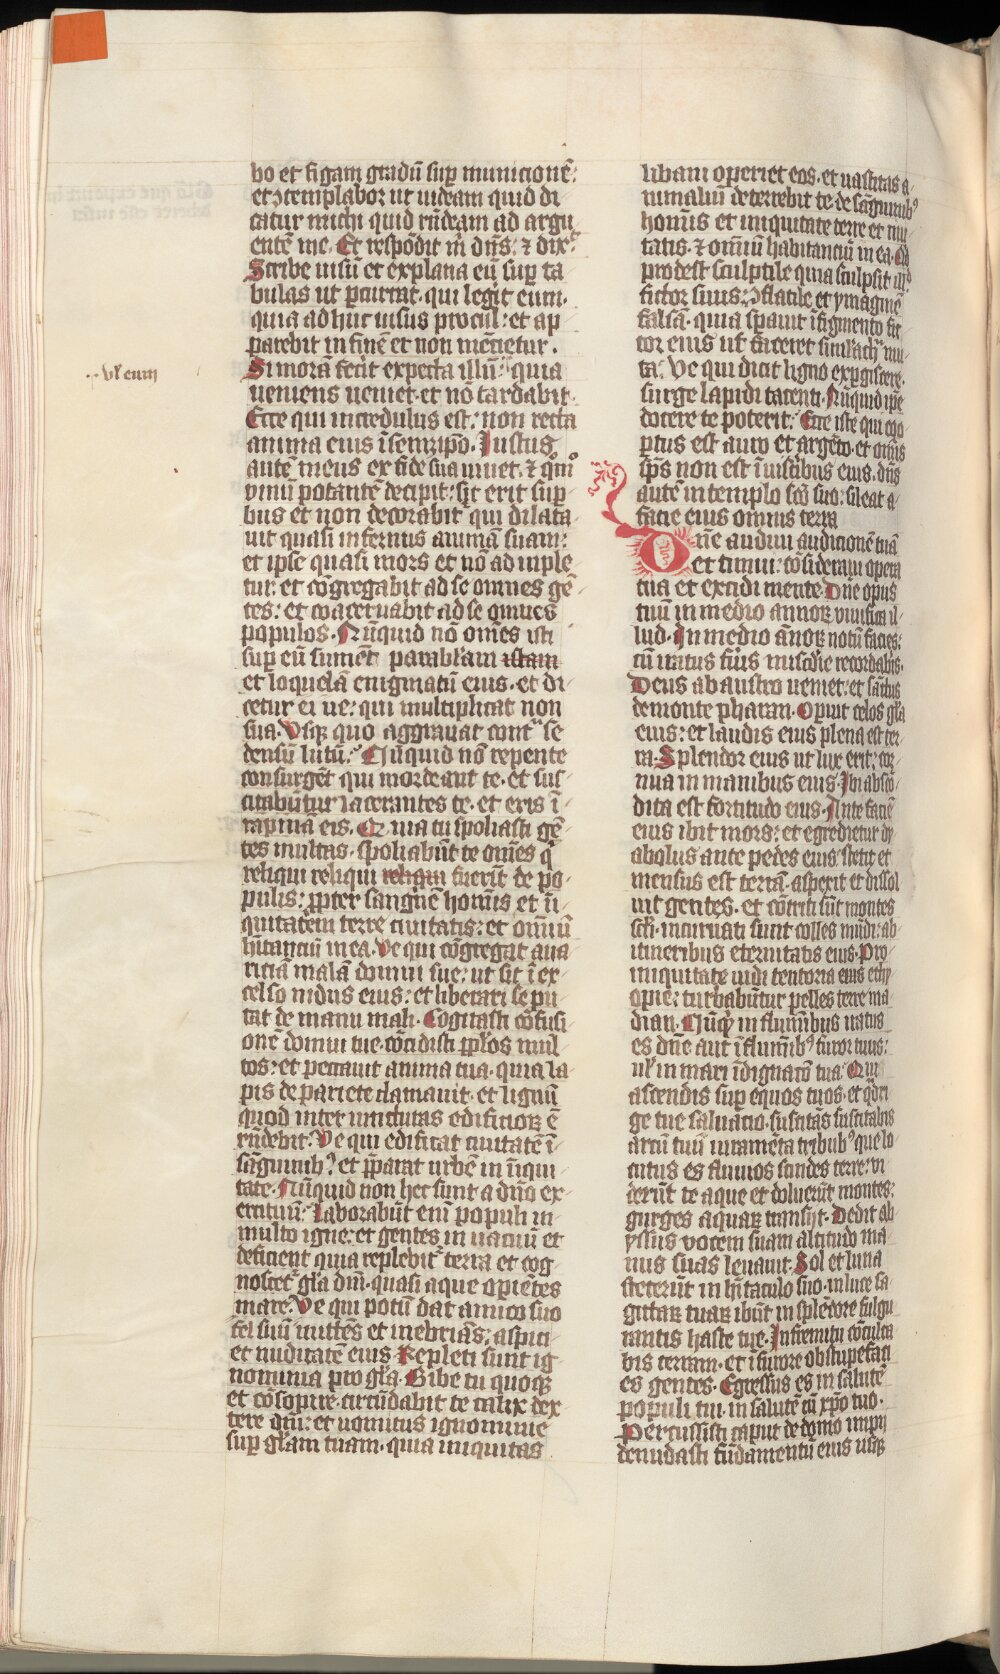 bo et figam gradū sup municionē:
et ɔtemplabor ut uideam quid di
catur michi quid rn̄deam ad argu
entē me. Et respōdit m̄ dn̄s: ⁊ dixᵗ
Scribe uisū et explana eū sup ta
bulas ut pcurrat. qui legit eum.
quia adhuc uisus procul: et ap
parebit in finē et non mēcietur.
Si morā fecit expecta illū: quia
ueniens ueniet. et nō tardabit.
Ecce qui incredulus est: non recta
anima eius ī semꝫipō. Iustus
autē meus ex fide sua uiuet. ⁊ qm̊
vinū potantē decipit: sic erit sup
bus et non decorabit qui dilata
uit quasi infernus animā suam:
et ipse quasi mors et nō adimple
tur: et cōgregabit ad se omnes gē
tes: et coaceruabit ad se omnes
populos. Nūquid nō oms̄ isti
sup eū sument parablam istam
et loquelā enigmatū eius. et di
cetur ei ue: qui multiplicat non
sua. Vsqꝫ quo aggrauat contᵃ se
densū lutū. Nūquid nō repente
consurgēt qui mordeant te. et sus
citabūtur lacerantes te. et eris ī
rapinā eis. Quia tu spoliasti gē
tes multas. spoliabūt te oms̄ q̄
reliqui reliqui reliqui fuerīt de po
pulis: ꝓpter sanguēm homīs et ī
quitatem terre ciuitatis: et omīū
hītanciū in ea. Ve qui cōgregat aua
riciā malā domui sue: ut sit ī ex
celso nidus eius: et liberari se pu
tat de manu mali. Cogitasti cōfusi
onē domui tue. cōcidisti pplōs mul
tos: et peccauit anima tua. quia la
pis de pariete clamauit. et lignū
quod inter iuncturas edificioꝝ ē
rn̄debit. Ve qui edificat ciuitatē ī
sāguinibꝰ. et pparat urbē in īqui
tate. Nūquid non hec sunt a dn̄o ex
ercituū: Laborabūt enī populi in
multo igne: et gentes in uacuū et
deficient quia replebitᵗ terra et cog
noscēt glā dm̄. quasi aque opiētes
mare. Ve qui potū dat amico suo
fel suū mittēs et inebriās: aspiciat
et nuditatē eius Repleti sunt ig
nominia pro glā. Bibe tu quoqꝫ
et cōsopire. circūdabit te calix dex
tere dn̄i: et uomitus ignominie
sup glam tuam. quia iniquitas
.. vl̄ eum
libani operiet eos. et uastitas a
nimaliū deterrebit te. de sāguinibꝰ
homīs et iniquitate terre et ciui
tatis. ⁊ omīū habitanciū in ea. Qd
prodest sculptile quia sculpsit illᵈ
fictor suus: ɔflatile et ymaginē
falsā. quia spauit ī figmento fic
tor eius ut faceret simlacrᵃ mu
ta. Ve qui dicit ligno expgiscere.
surge lapidi tacenti. Nūquid ipē
docere te poterit. Ecce iste qui coo
ptus est auro et argēto. et omīs
sps non est ī uiscibus eius. dn̄s
autē in templo scō suo: sileat a
facie eius omnis terra
Dn̄e audiui audicionē tuā
et timui: cōsideraui opera
tua et excidi mente. Dn̄e opus
tuū in medio annoꝝ viuifica il
lud. In medio ānoꝝ notū facies:
cū iratus fūis miscdīe recordabis.
Deus ab austro ueniet: et sāctus
de monte pharan. Opuit celos glā
eius: et laudis eius plena est ter
ra. Splendor eius ut lux erit: cor
nua in manibus eius. Ibi absco
dita est fortitudo eius. Ante faciē
eius ibit mors: et egredietur dy
abolus ante pedes eius. stetit et
mensus est terrā. aspexit et dissol
uit gentes. et cōtriti sūt montes
scli. incuruati sunt colles mūdi: ab
itineribus eternitatis eius. Pro
iniquitate uidi tentoria eius ethy
opie: turbabūtur pelles terre ma
dian. Nūqd in fluminibus iratus
es dn̄e aut ī flumībꝰ furor tuus:
ul̄ in mari īdignacō tua. Qui
ascendis sup equos tuos. et qdri
ge tue saluacio. suscitās suscitabis
arcū tuū iuramēta tribubꝰ que lo
cutus es fluuios scindes terre: vi
derūt te aque et doluerūt montes:
gurges aquaꝝ transijt. Dedit ab
yssus vocem suam altitudo ma
nus suas leuauit. Sol et luna
steterūt in hītaculo suo. in luce sa
gittaꝝ tuaꝝ ibūt in splēdore fulgu
rantis haste tue. In fremitu cōculca
bis terram. et ī furore obstupefaci
es gentes. Egressus es in salutē
populi tui. in salutē cū xp̄o tuo.
Percussisti caput de domo impij
denudasti fūdamentū eius usqꝫ